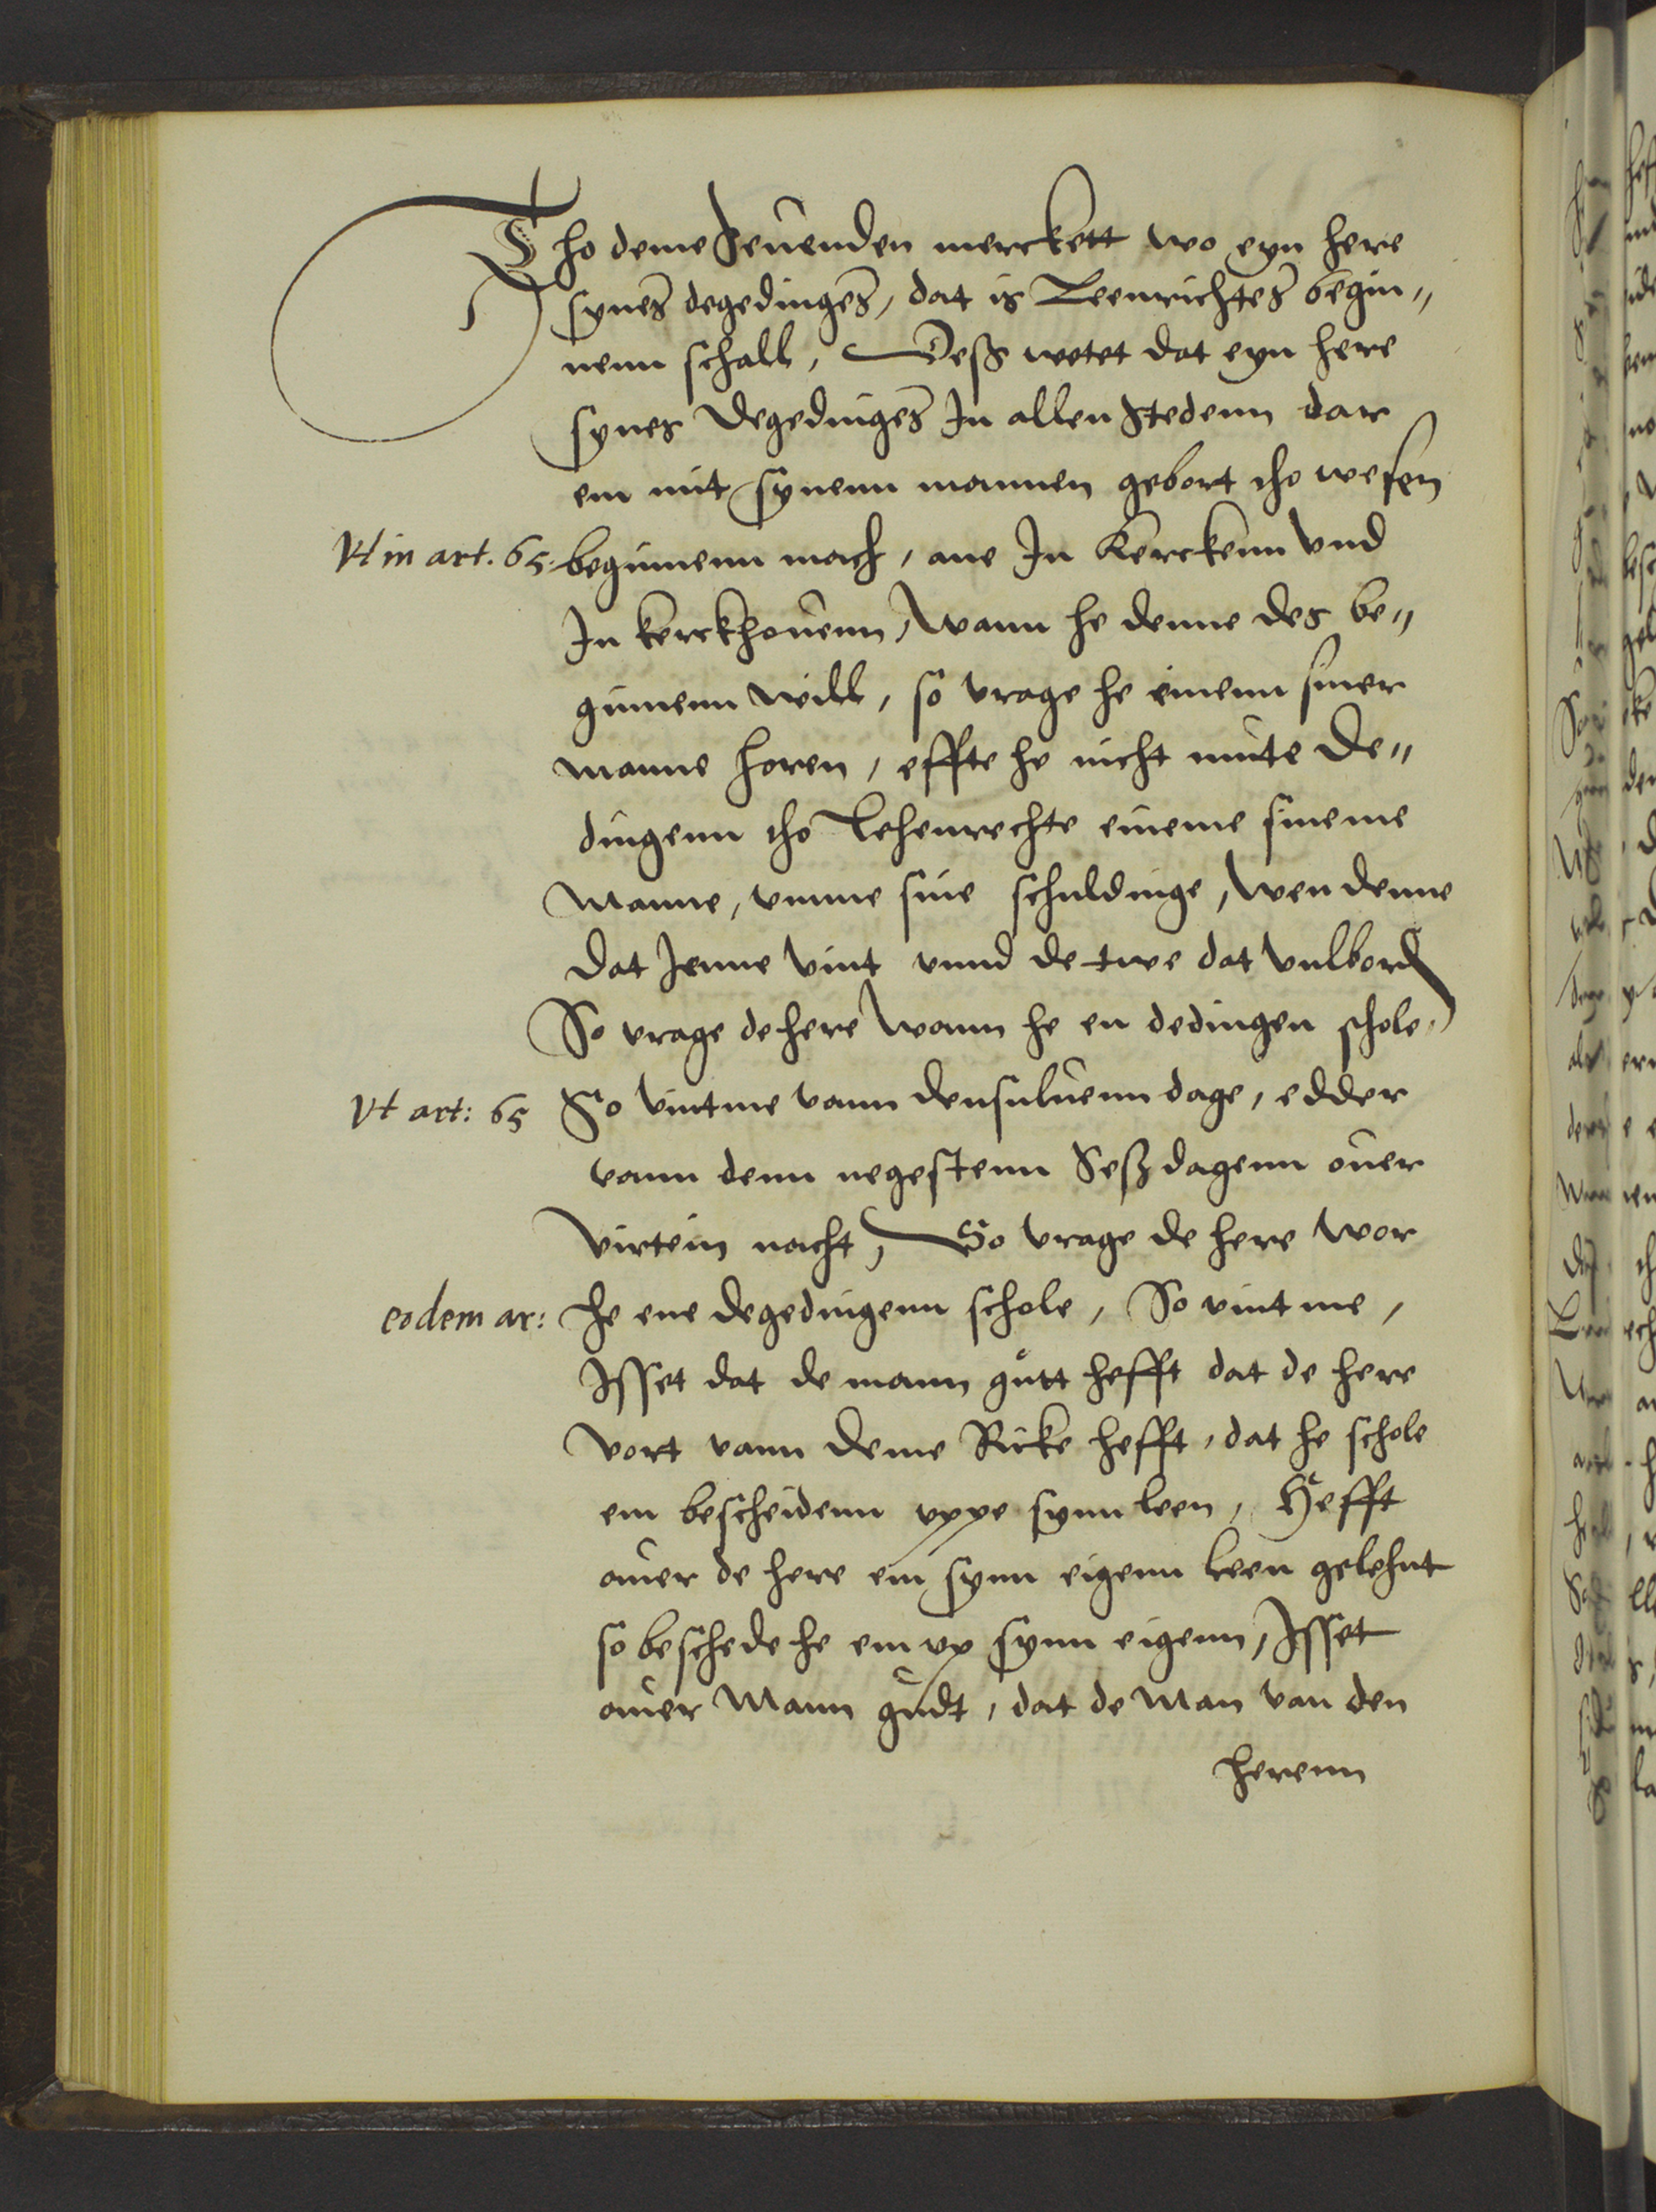 Tho deme Seuenden merckett wo eyn here
synes degedinges, dat is Leenrichtes begin„
nenn schall, Deß wetet dat eyn here
synes Degedinges In allen Stedenn dar
em mit synenn mannen gebort tho wesen
Vt in art. 65. beginnenn mach, ane In Kerckenn Vnd
In kerckhouenn, Wann he denne des be„
ginnenn Will, so vrage he einenn siner
manne horen, effte he nicht mute De„
dingenn tho Lehenrechte eineme sineme
Manne, vmme sine schuldinge, Wen denne
Dat Jenne Vint vnnd de twe dat Vulbord
So vrage de here Wann he en dedingen schole,
Vt art: 65 So Vintme vann densuluenn dage, edder
vann denn negestenn Seß dagenn ouer
Virtein nacht, So Vrage de here Wor
eodem ar: he ene degedingenn schole, So vint me,
Isset dat de mann gutt hefft dat de here
Vort vann deme Ricke hefft, dat he schole
em bescheidenn vppe synn leen, Hefft
ouer de here em synn eigenn leen gelehnt
so beschede he em vp synn eigenn, Isset
ouer Mann gudt, dat de Man van den
herenn